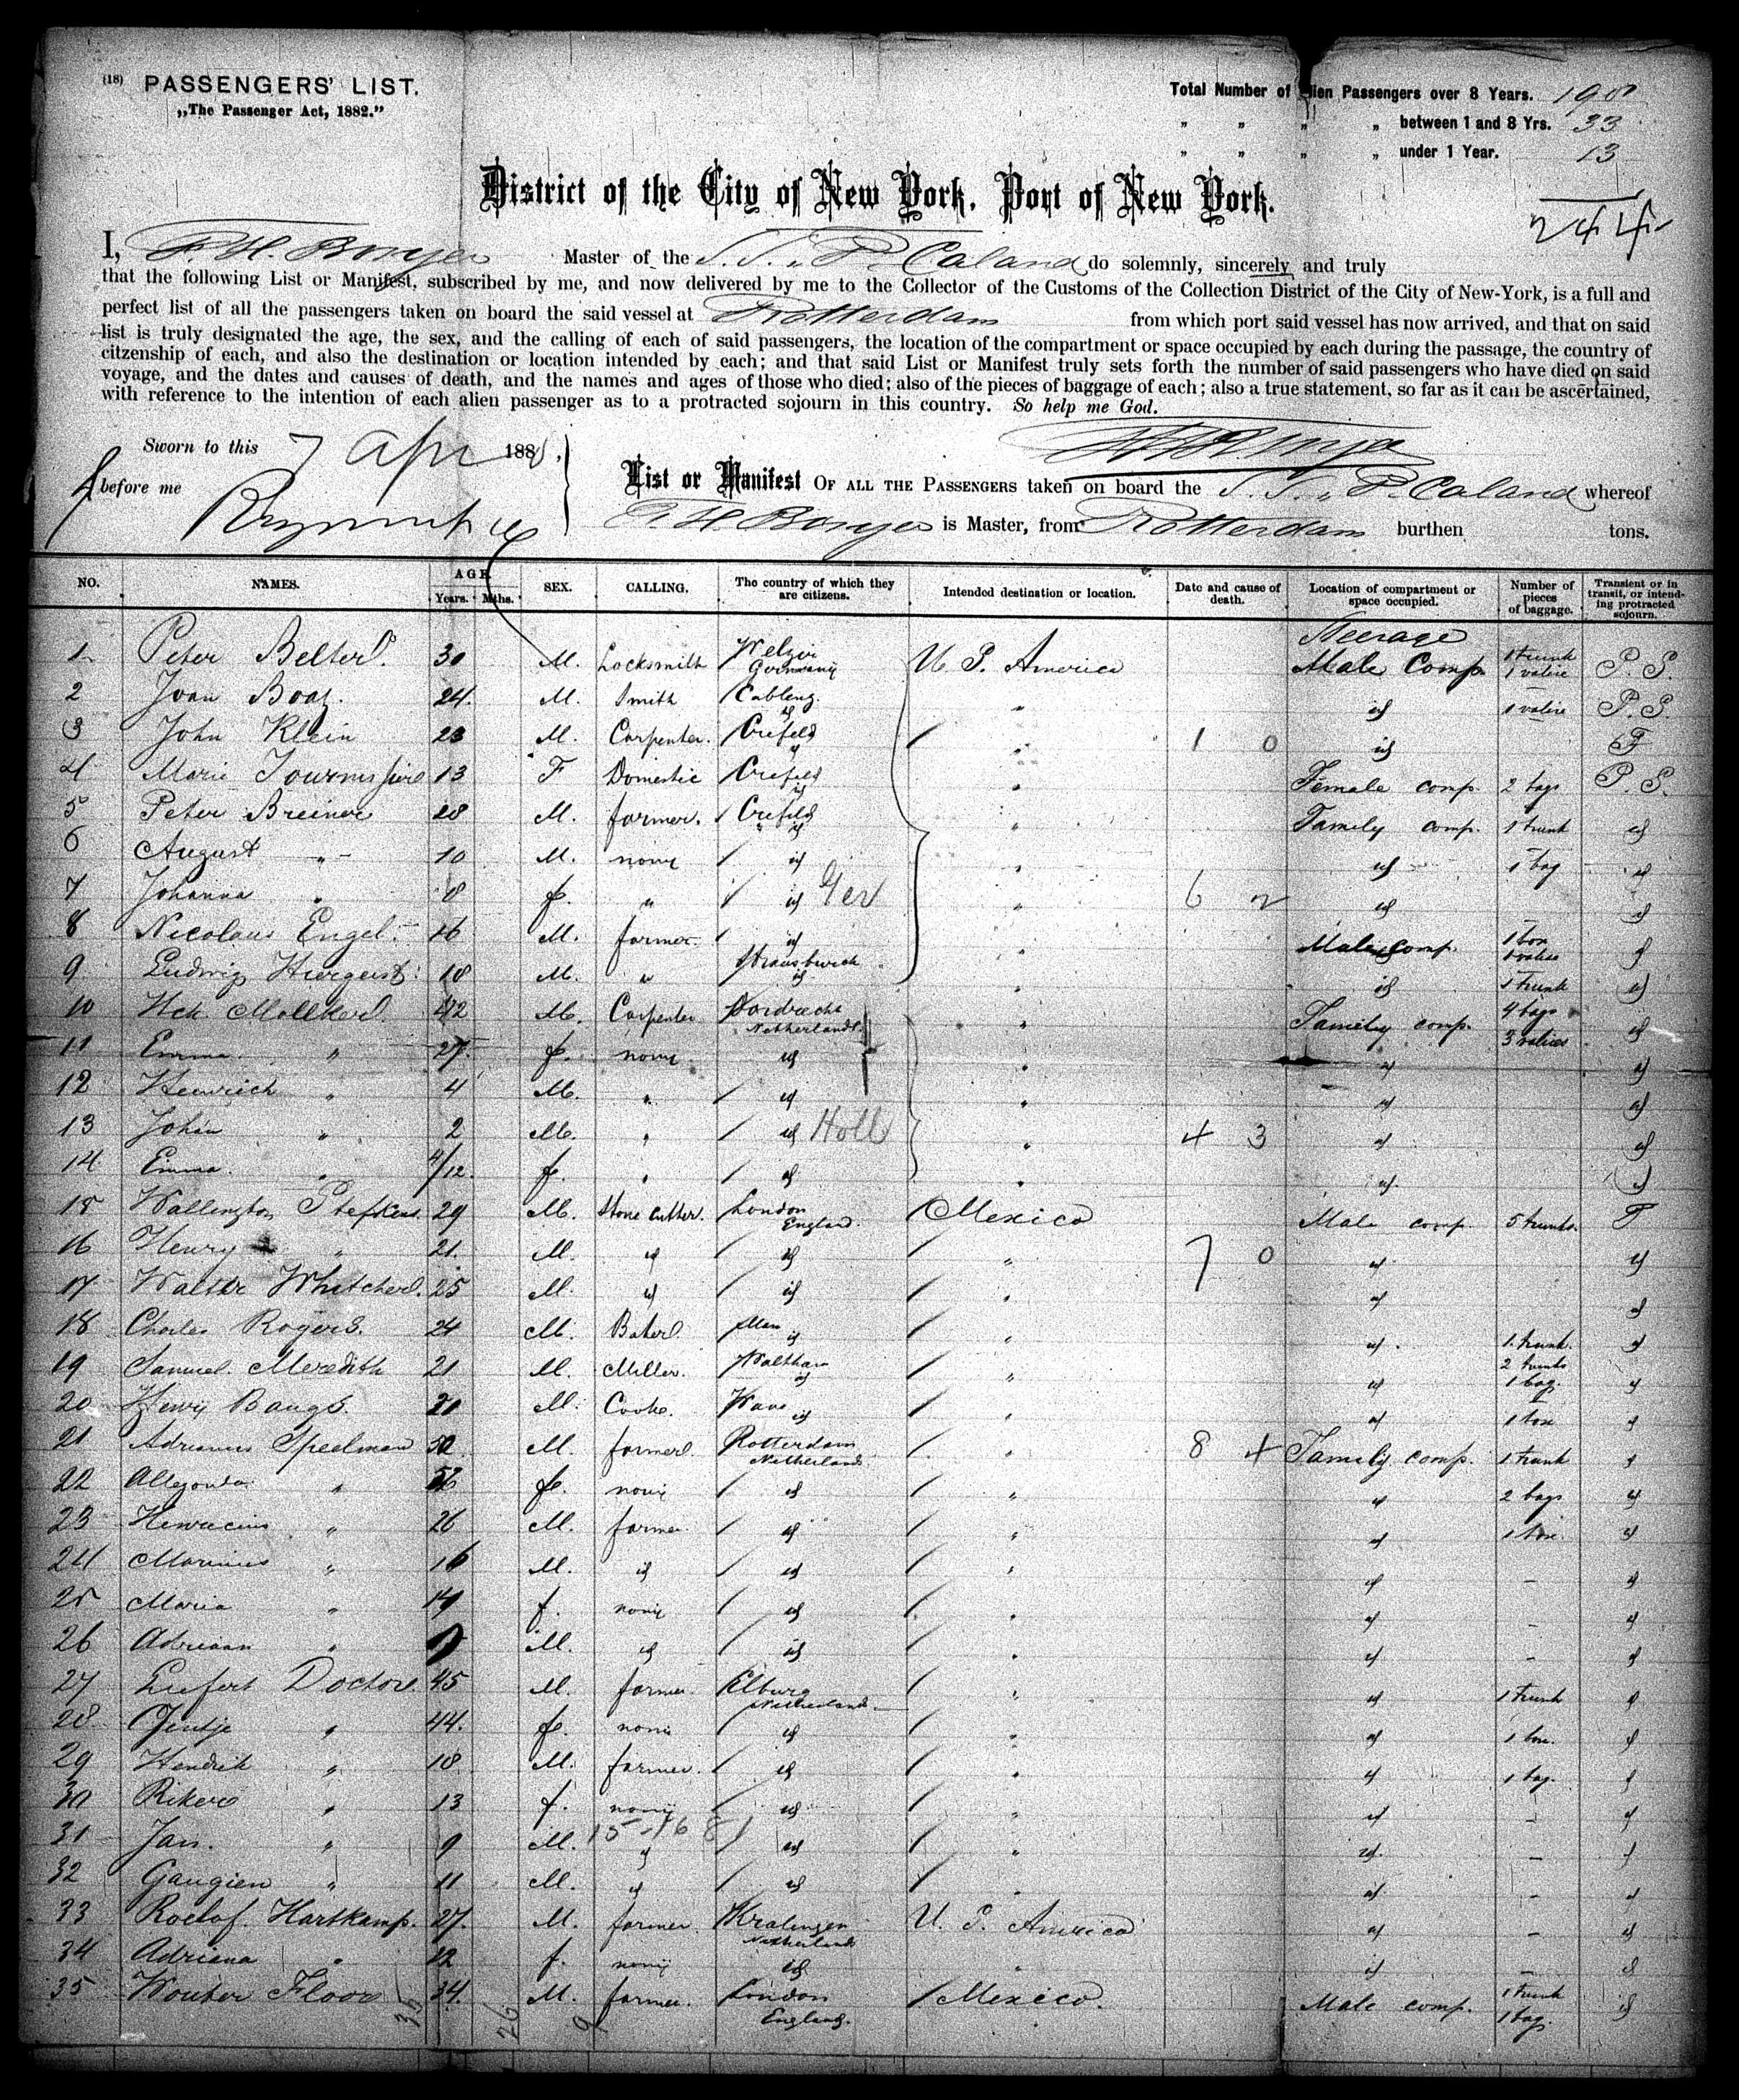 (18) PASSENGERS' LIST.
„The Passenger Act, 1882."
Total Number of Alien Passengers over 8 Years. 198
„ „ „ „ between 1 and 8 Yrs. 33
„ „ „ „ under 1 Year. 13
244
District of the City of New York, Port of New York.
I, Master of the S.S. „P. Caland do solemnly, sincerely and truly
that the following List or Manifest, subscribed by me, and now delivered by me to the Collector of the Customs of the Collection District of the City of New-York, is a full and
perfect list of all the passengers taken on board the said vessel at Rotterdam from which port said vessel has now arrived, and that on said
list is truly designated the age, the sex, and the calling of each of said passengers, the location of the compartment or space occupied by each during the passage, the country of
citzenship of each, and also the destination or location intended by each; and that said List or Manifest truly sets forth the number of said passengers who have died on said
voyage, and the dates and causes of death, and the names and ages of those who died; also of the pieces of baggage of each; also a true statement, so far as it can be ascertained,
with reference to the intention of each alien passenger as to a protracted sojourn in this country. So help me God.
Sworn to this 7 Apr 188
before me
List or Manifest OF ALL THE PASSENGERS taken on board the S.S. „P. Caland whereof
is Master, from Rotterdam burthen tons.
NO. NAMES. AGE. Years. Mths. SEX. CALLING. The country of which they are citizens. Intended destination or location. Date and cause of death. Location of compartment or space occupied. Number of pieces of baggage. Transient or in transit, or intending protracted sojourn.
Steerage
1 Peter 30 M. Locksmith Germany U. S. America Male Comp. 1 trunk 1 valise P. S.
2 24. M. Smith " id 1 valise P. S.
3 John Klein 23 M. Carpenter. Crefeld id " 1 0 id T
4 Marie 13 F Domestic Crefeld id " Female comp. 2 bags P. S.
5 Peter Breiner 28 M. farmer. Crefeld id " Family comp. 1 trunk id
6 August " 10 M. none id " id 1 bag id
7 Johanna " 8 f. " id Ger " 6 2 id id
8 Nicolaus Engel. 16 M. farmer. id " Male comp. 1 box 1 valise id
9 Ludwig 18 M. " id " id 1 trunk id
10 42 M. Carpenter Dordrecht Netherlands " Family comp. 4 bags 3 valises id
11 Emma " 27 f. none id " id id
12 Heinrich " 4 M. " id " id id
13 Johan " 2 M. " id Holl " 4 3 id id
14 Emma. " 4/12 f. " id " id id
15 Wallington 29 M. Stone cutter. London England. Mexico Male comp. 5 trunks. T
16 Henry " 21. M. id id " 7 0 id id
17 25 M. id id " id id
18 Charles Rogers. 24 M. id " id 1 trunk. id
19 Samuel Meredith 21 M. Miller. id " id 2 trunks 1 bag. id
20 Henry Bangs. M. id " id 1 box id
21 Adrianus Speelman M. Rotterdam Netherlands " 8 4 Family comp. 1 trunk id
22 " f. none id " id 2 bags id
23 " 26 M. farmer id " id 1 box. id
24 Marinus " 16 M. id id " id - id
25 Maria " f. none id " id - id
26 Adriaan " M. id id " id - id
27 45 M. farmer Elburg Netherlands " id 1 trunk id
28 " 44. f. none id " id 1 box. id
29 Hendrik " 18 M. farmer. id " id 1 bag. id
30 " 13 f. none id " id - id
31 Jan. " 9 M. id id " id - id
32 " 11 M. id id " id - id
33 Roelof Hartkamp. 27. M. farmer Kralingen Netherlands U. S. America id - id
34 Adriana " f. none id " id - id
35 Wouter 34. M. farmer. London England. Mexico. Male comp. 1 trunk 1 bag. id
35 26 9